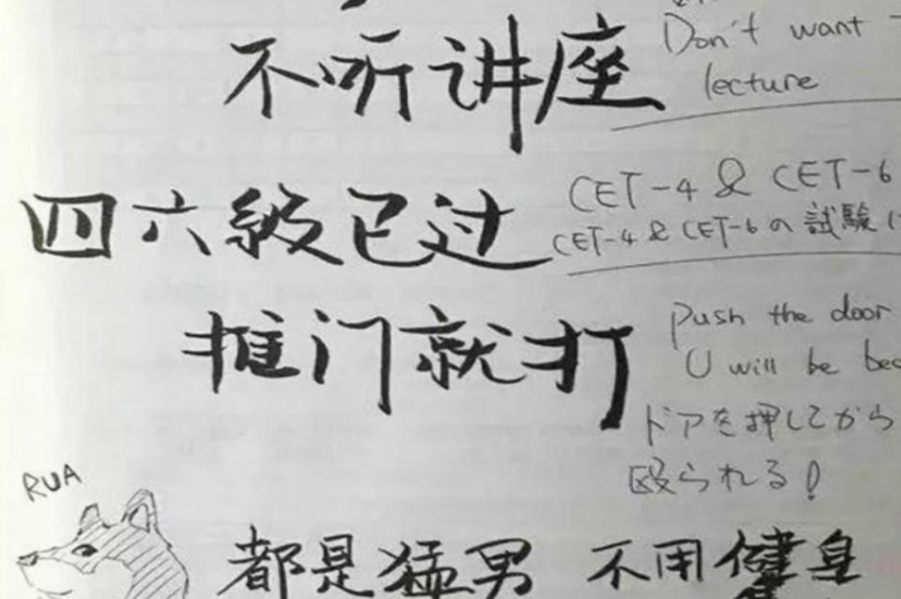 不听讲座
Don't want
lecture
四六级已过
CET-4 & CET-6
CET-4 & CET-6の試験
推门就打
Push the door
U will be
ドアを押してから
殴られる!
RUA
都是猛男 不用健身